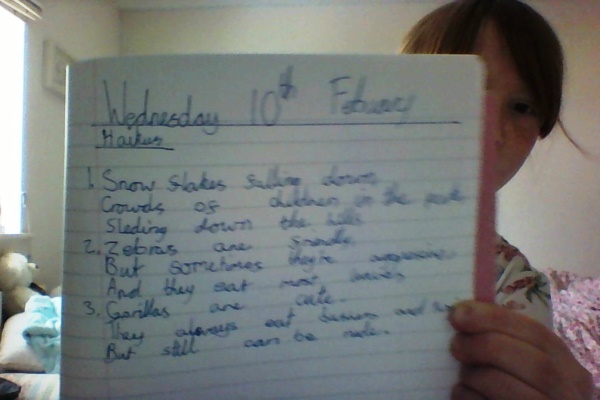 Wednesday 10th Febuary
Haikus
1. Snow flakes falling down
Crowds of children in the park
Sleding down the hills
2. Zebras are friendly
But sometimes they're aggressive
And they eat most
3. Garillas are cute.
They always eat and
But still can be rude.